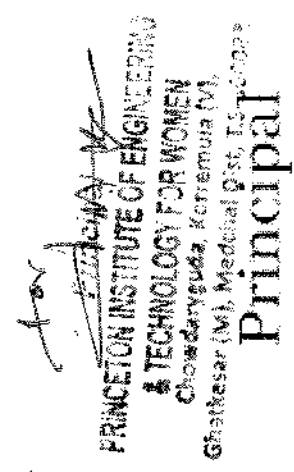 for
PRINCIPAL
PRINCETON INSTITUTE OF ENGINEERING
& TECHNOLOGY FOR WOMEN
Chowdaryguda, Korremula (V),
Ghatkesar (M), Medchal Dist, T.S.
Principal